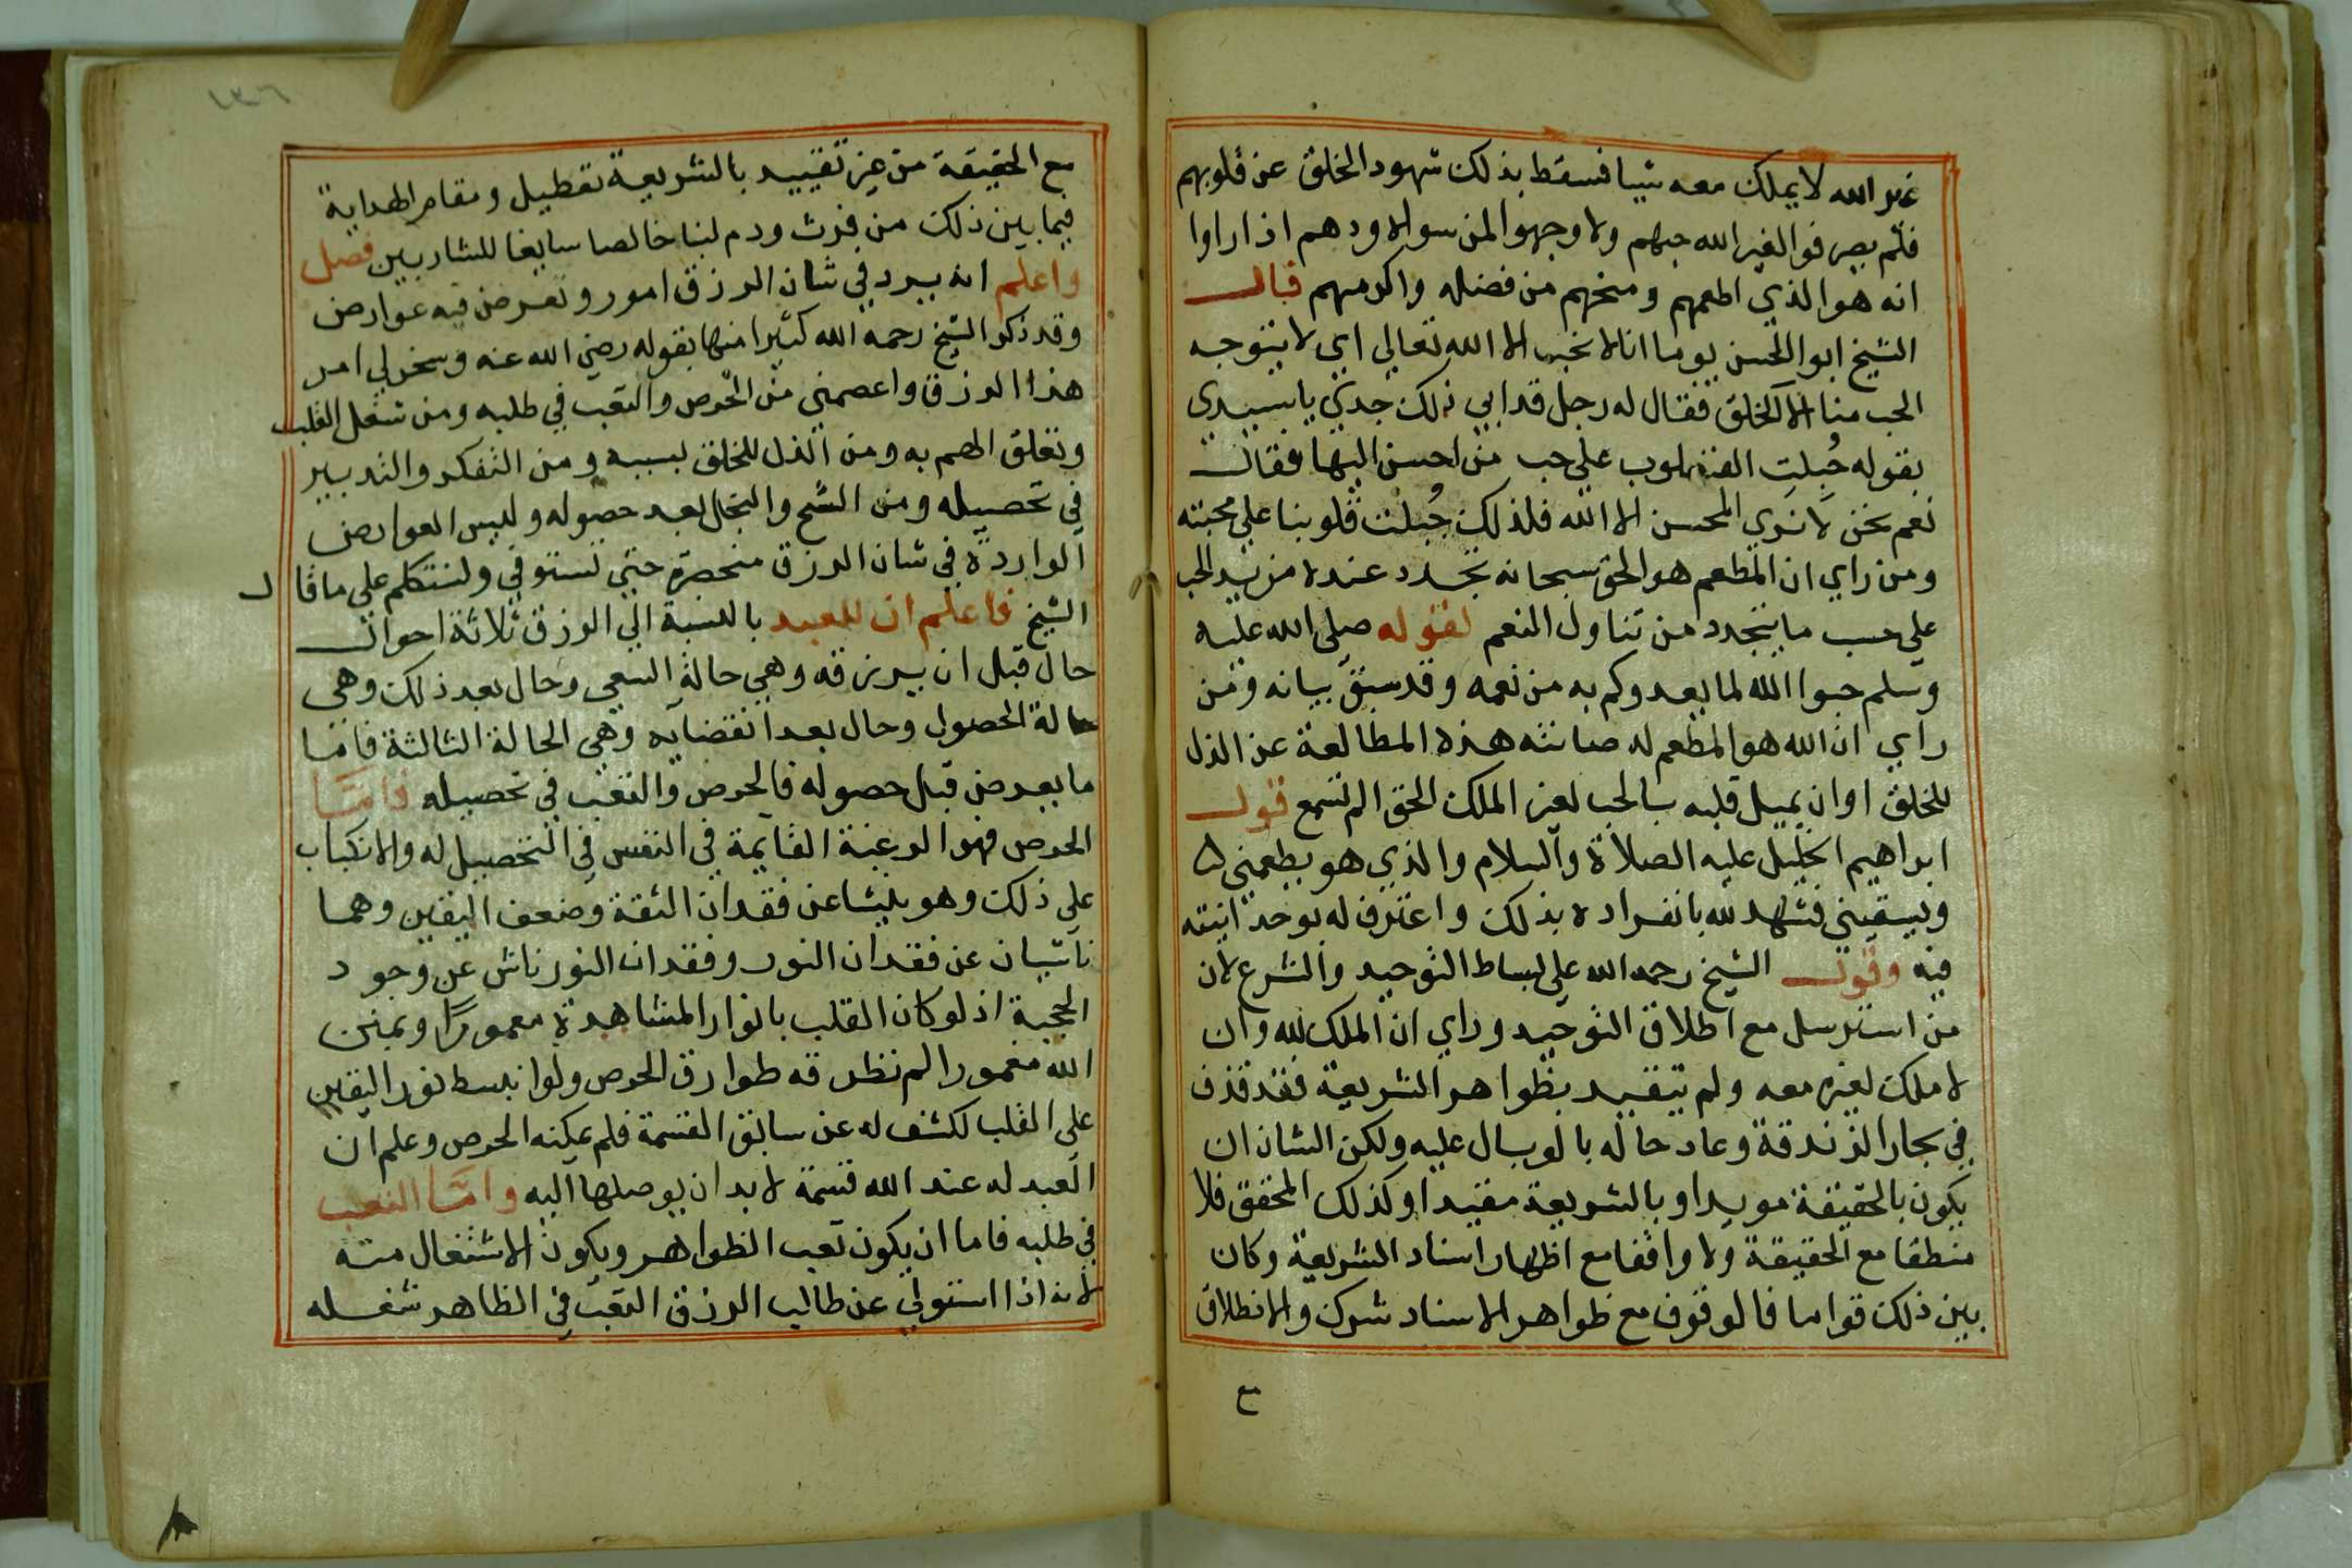 غير الله لا يملك معه شيا فسقط بذلك شهود الخلق عن قلوبهم
فلم يصرفوا لغير الله حبهم ولا وجهوا لمن سواه ودهم اذ اراوا
انه هو الذي اطعمهم ومنحهم من فضله واكرمهم قال
الشيخ ابو الحسن يوما انا لا نحب الا الله تعالي اي لا يتوجه
الحب منا الا لخلق فقال له رجل قد ابي ذلك جدك يا سيدي
بقوله جُبلت القلوب علي حب من احسن اليها فقال
نعم نحن لا نَري المحسن الا الله فلذلك جُبلت قلوبنا علي محبته
ومن راي ان المطعم هو الحق سبحانه تجدد عنده مزيد الحب
علي حسب ما يتجدد من تناول النعم لقوله صلي الله عليه
وسلم حبوا الله لما يعدوكم به من نعمه وقد سبق بيانه ومن
راي ان الله هو المطعم له صانته هذه المطالعة عن الذل
للخلق او ان يميل قلبه بالحب لغير الملك الحق الم تسمع قول
ابراهيم الخليل عليه الصلاة والسلام والذي هو يطعمني
ويسقيني فشهد لله بانفراده بذلك واعترف له بوحدانيته
فيه وقول الشيخ رحمه الله علي بساط التوحيد والشرع لان
من استرسل مع اطلاق التوحيد وراي ان الملك لله وان
لا ملك لغيره معه ولم يتقيد بظواهر الشريعة فقد قذف
في بحار الزندقة وعاد حاله بالوبال عليه ولكن الشان ان
يكون بالحقيقة مويدا وبالشريعة مقيدا وكذلك المحقق فلا
منطقا مع الحقيقة ولا واقفا مع اظهار اسناد الشريعة وكان
بين ذلك قواما فالوقوف مع ظواهر الاسناد شرك والانطلاق
مع
١٣٦
مع الحقيقة من غير تقييد بالشريعة تعطيل ومقام الهداية
فيما بين ذلك من فرث ودم لبنا خالصا سايغا للشاربين فصل
واعلم انه يرد في شان الرزق امور وتعرض فيه عوارض
وقد ذكر الشيخ رحمه الله كثيرا منها بقوله رضي الله عنه وسخر لي امر
هذا الرزق واعصمني من الحرص والتعب في طلبه ومن شغل القلب
وتعلق الهم به ومن الذل للخلق بسببه ومن التفكر والتدبير
في تحصيله ومن الشح والبخل بعد حصوله وليس العوارض
الواردة في شان الرزق منحصرة حتي تستوفي ولنتكلم علي ما قال
الشيخ فاعلم ان للعبد بالنسبة الي الرزق ثلاثة احوال
حال قبل ان يرزقه وهي حالة السعي وحال بعد ذلك وهي
حالة الحصول وحال بعد انقضايه وهي الحالة الثالثة فاما
ما يعرض قبل حصوله فالحرص والتعب في تحصيله فامّا
الحرص فهو الرغبة القايمة في النفس في التحصيل له والانكباب
علي ذلك وهو ينشا عن فقدان الثقة وضعف اليقين وهما
ناشيان عن فقدان النور وفقدان النور ناش عن وجود
الحجبة اذ لو كان القلب بانوار المشاهدة معمورًا وبمنن
الله مغمورا لم تطرقه طوارق الحرص ولو انبسط نور اليقين
علي القلب لكشف له عن سابق القسمة فلم يمكنه الحرص وعلم ان
العبد له عند الله قسمة لا بد ان يوصلها اليه وامّا التعب
في طلبه فاما ان يكون تعب الظواهر ويكون الاشتغال منه
لانه اذا استولي عن طالب الرزق التعب في الظاهر شغله